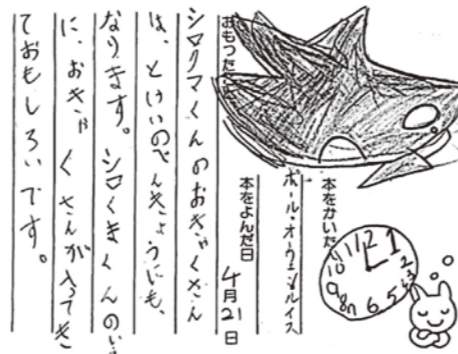 本をかいた
ポール・オウエン・ルイス
本をよんだ日
4月21日
おもったこ
シロクマくんのおきゃくさん
は、とけいのべんきょうにも、
なります。シロくまくんのい
に、おきゃくさんが入ってき
ておもしろいです。
12 1 2 3 4 5 6 7 8 9 10 11